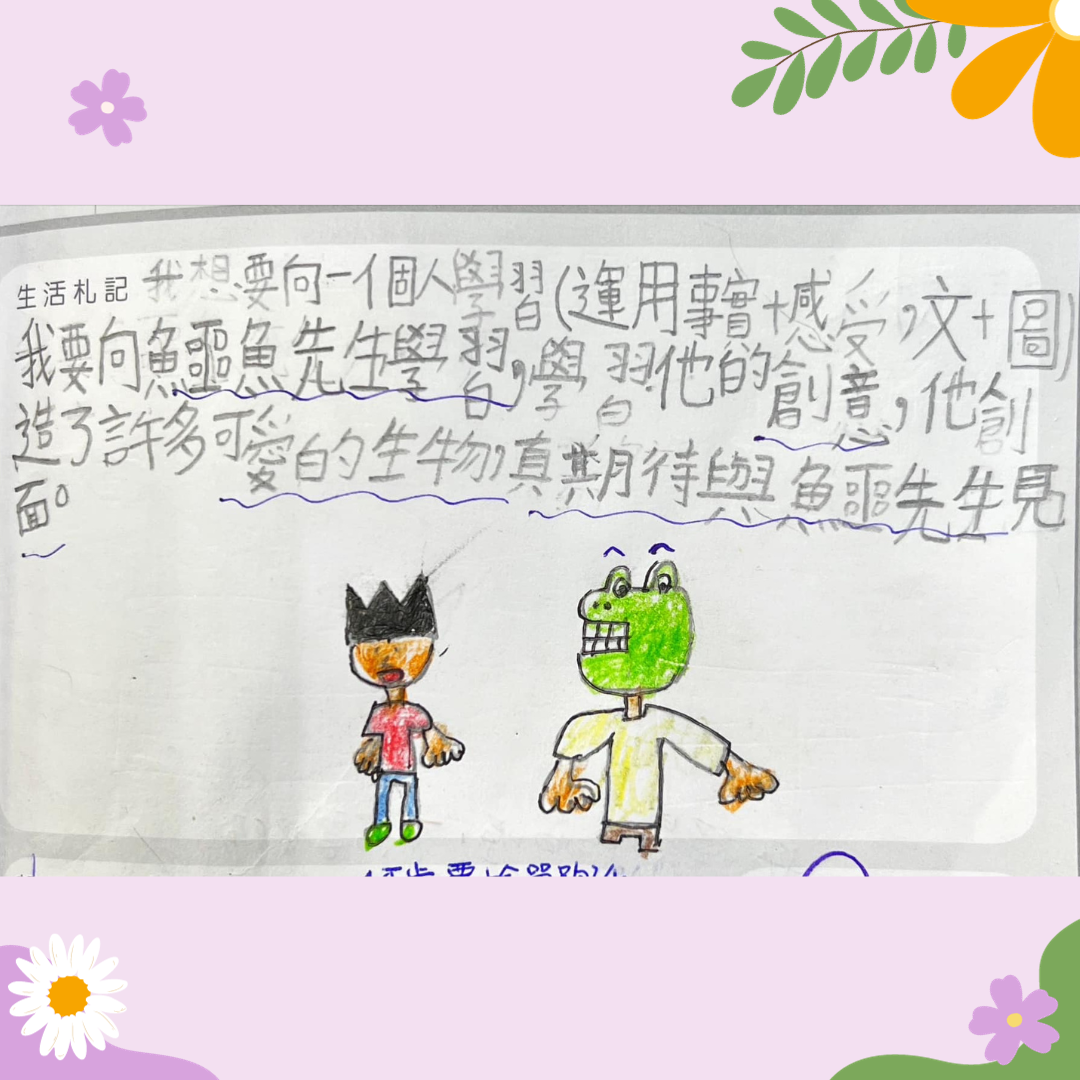 生活札記 我想要向一個人學習(運用事實+感受,文+圖)
我要向魚鱷魚先生學習,學習他的創意,他創
造了許多可愛的生物,真期待與魚鱷先生見
面。